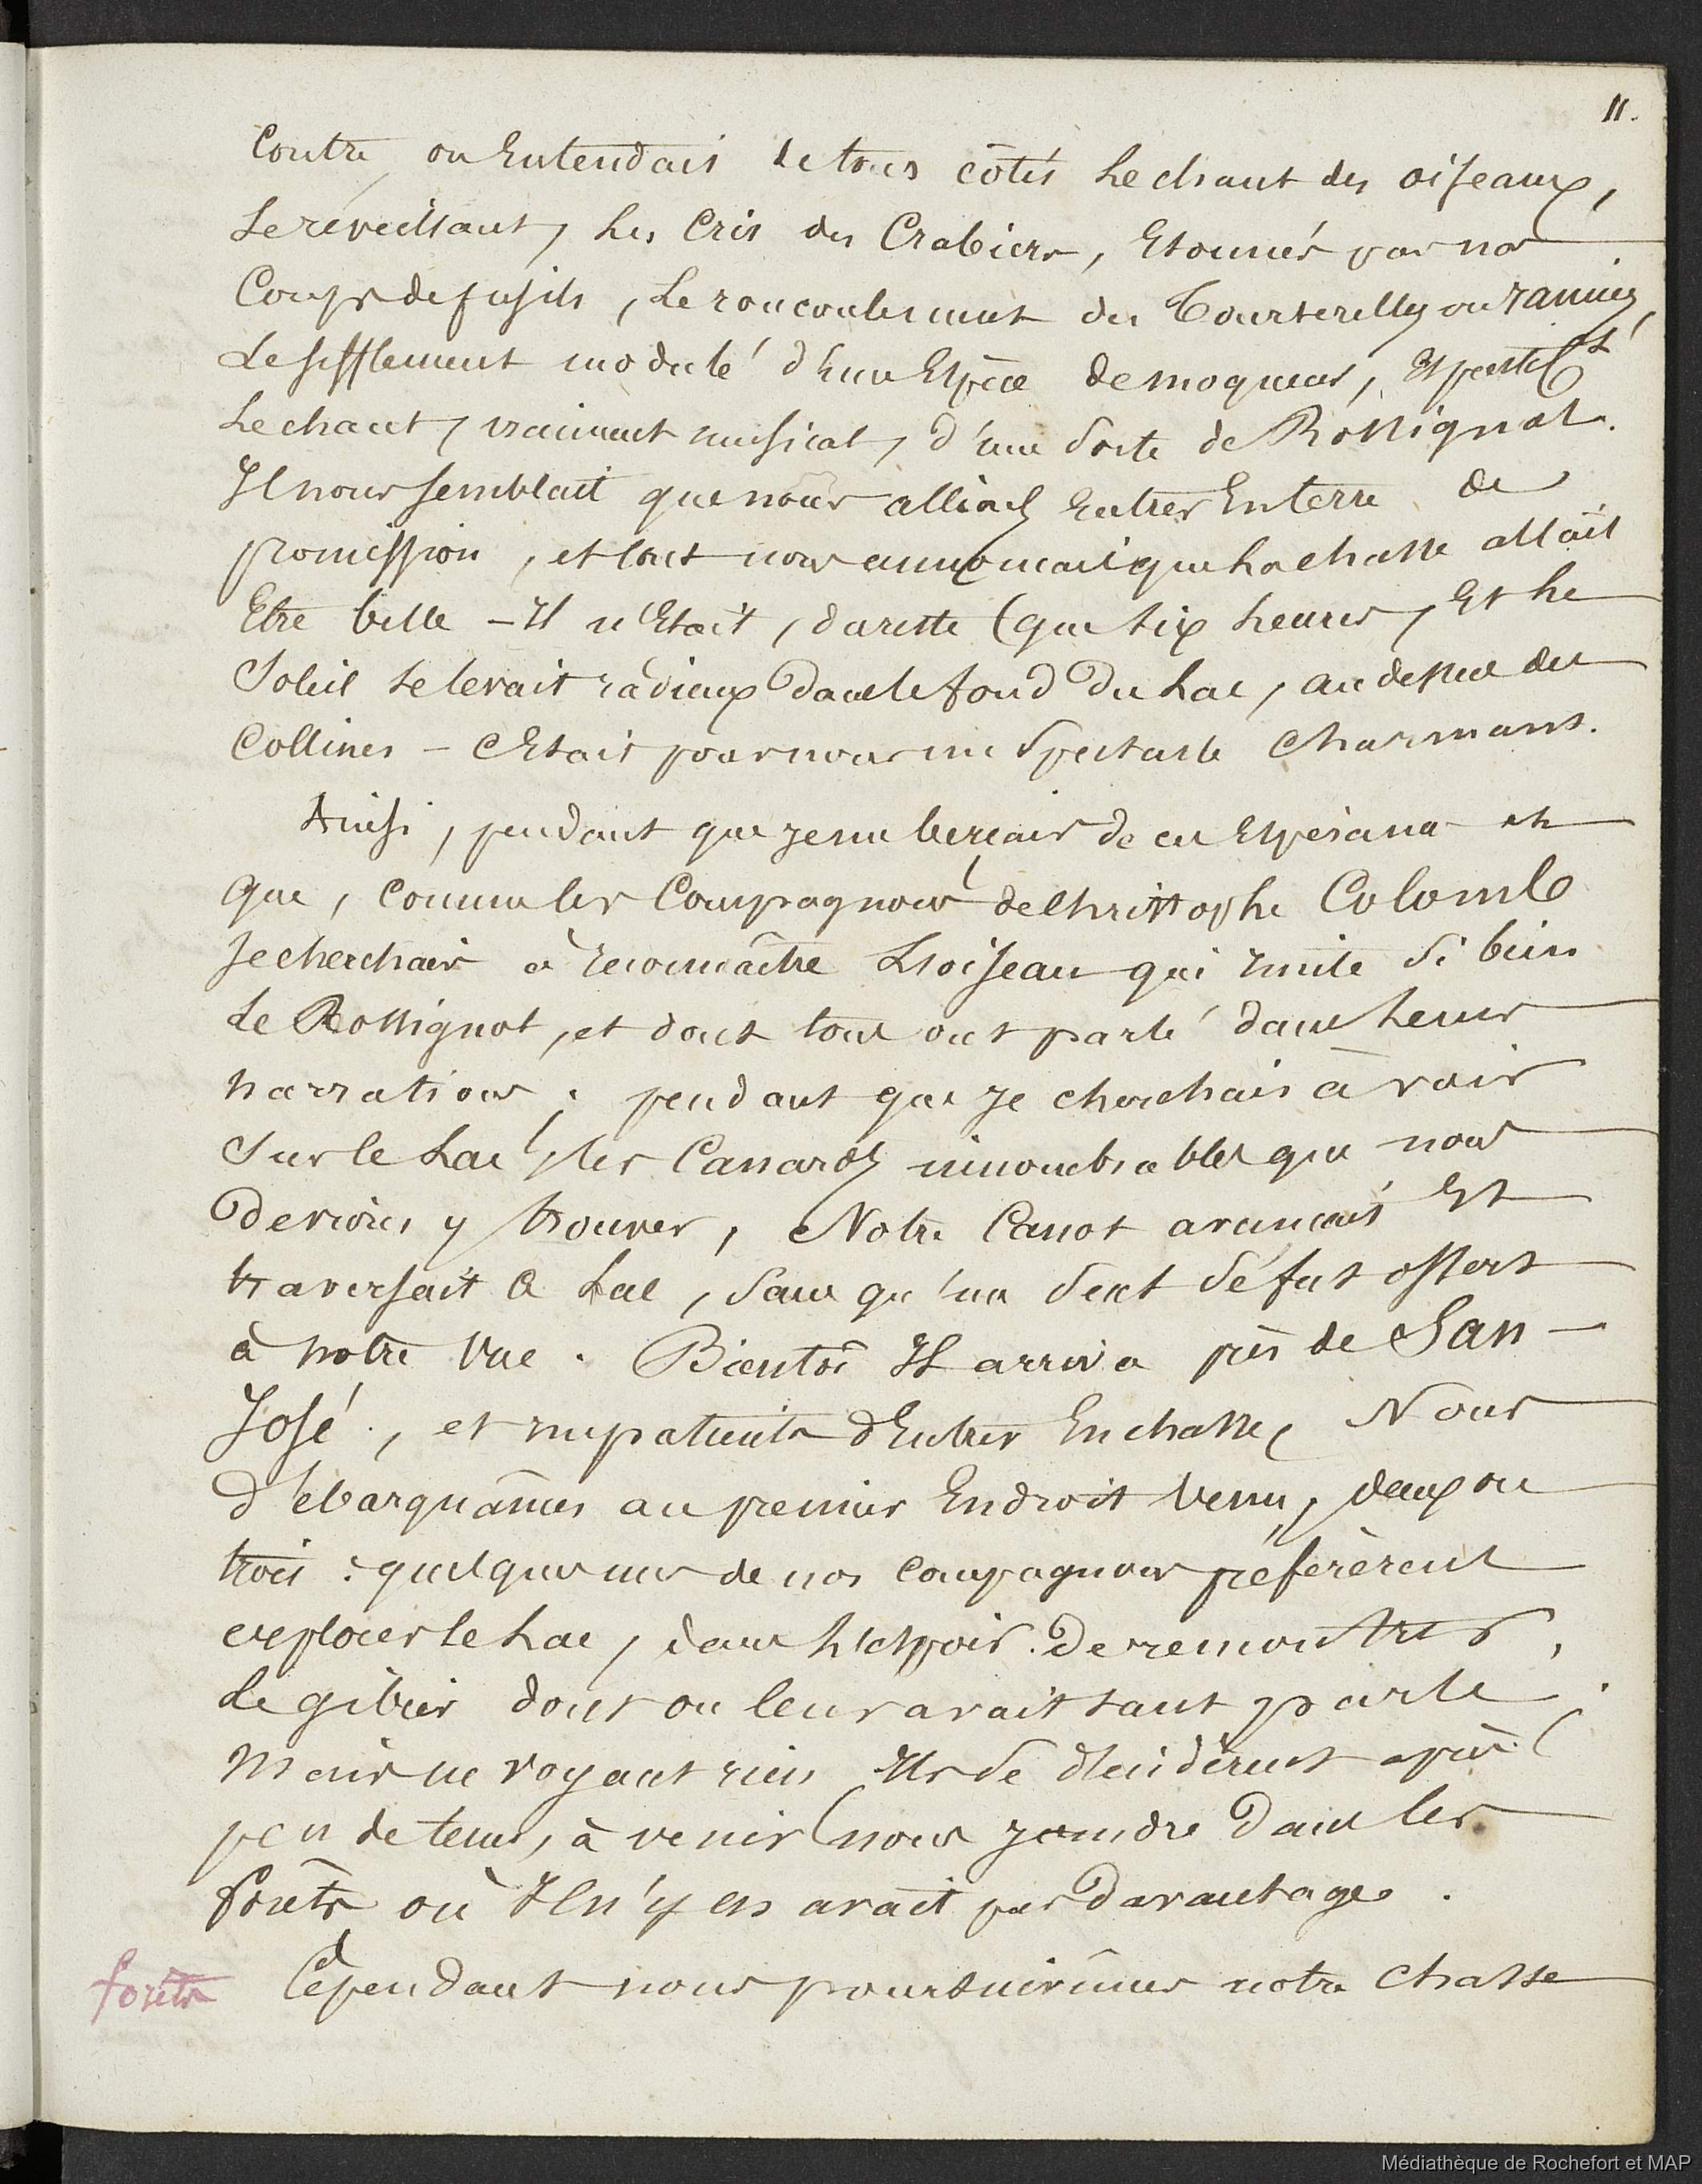 11.
Contre, on Entendais de tous côtés Le chant des oiseaux,
Se réveillant, Les Cris des Crabiers, Etonnés par nos
Coups de fusils, Le roucoulement des Tourterelles ou ramiers,
Le sifflement modulé d'une Espèce de moqueur, Et
Le chant, vraiment musical, d'une Sorte de Rossignol.
Il nous semblait que nous allions Entrer En terre de
promission, et tout nous annoncait que La chasse allait
Etre belle - Il n'Etait, du reste que six heures, Et Le
Soleil se levait radieux Dans le fond Du Lac, au dessus des
Collines - C'Etait pour nous un Spectacle Charmant.
Ainsi, pendant que je me berçais de ces Espérances et
que, Comme les Compagnons de Christophe Colomb
Je cherchais à reconnaître L'oiseau qui imite Si bien
Le Rossignol, et dont tous ont parlé dans Leurs
narrations ; pendant que je cherchais à voir
Sur le Lac, les Canards innombrables que nous
Devions y trouver, Notre Canot avancait Et
traversait le Lac, Sans qu'un Seul Se fut offert
à notre vue. Bientôt Il arriva près de San-
José, et impatients d'Entrer En chasse, Nous
Débarquâmes au premier Endroit venu, deux ou
trois : quelques uns de nos Compagnons préférèrent
explorer le Lac, dans L'espoir De rencontrer,
Le gibier dont on leur avait tant parlé.
Mais ne voyant rien Ils Se décidèrent après
peu de tems, à venir nous joindre Dans les
forêts où Il n'y en avait pas Davantage.
forêts
Cependant nous poursuivîmes notre Chasse
Médiathèque de Rochefort et MAP